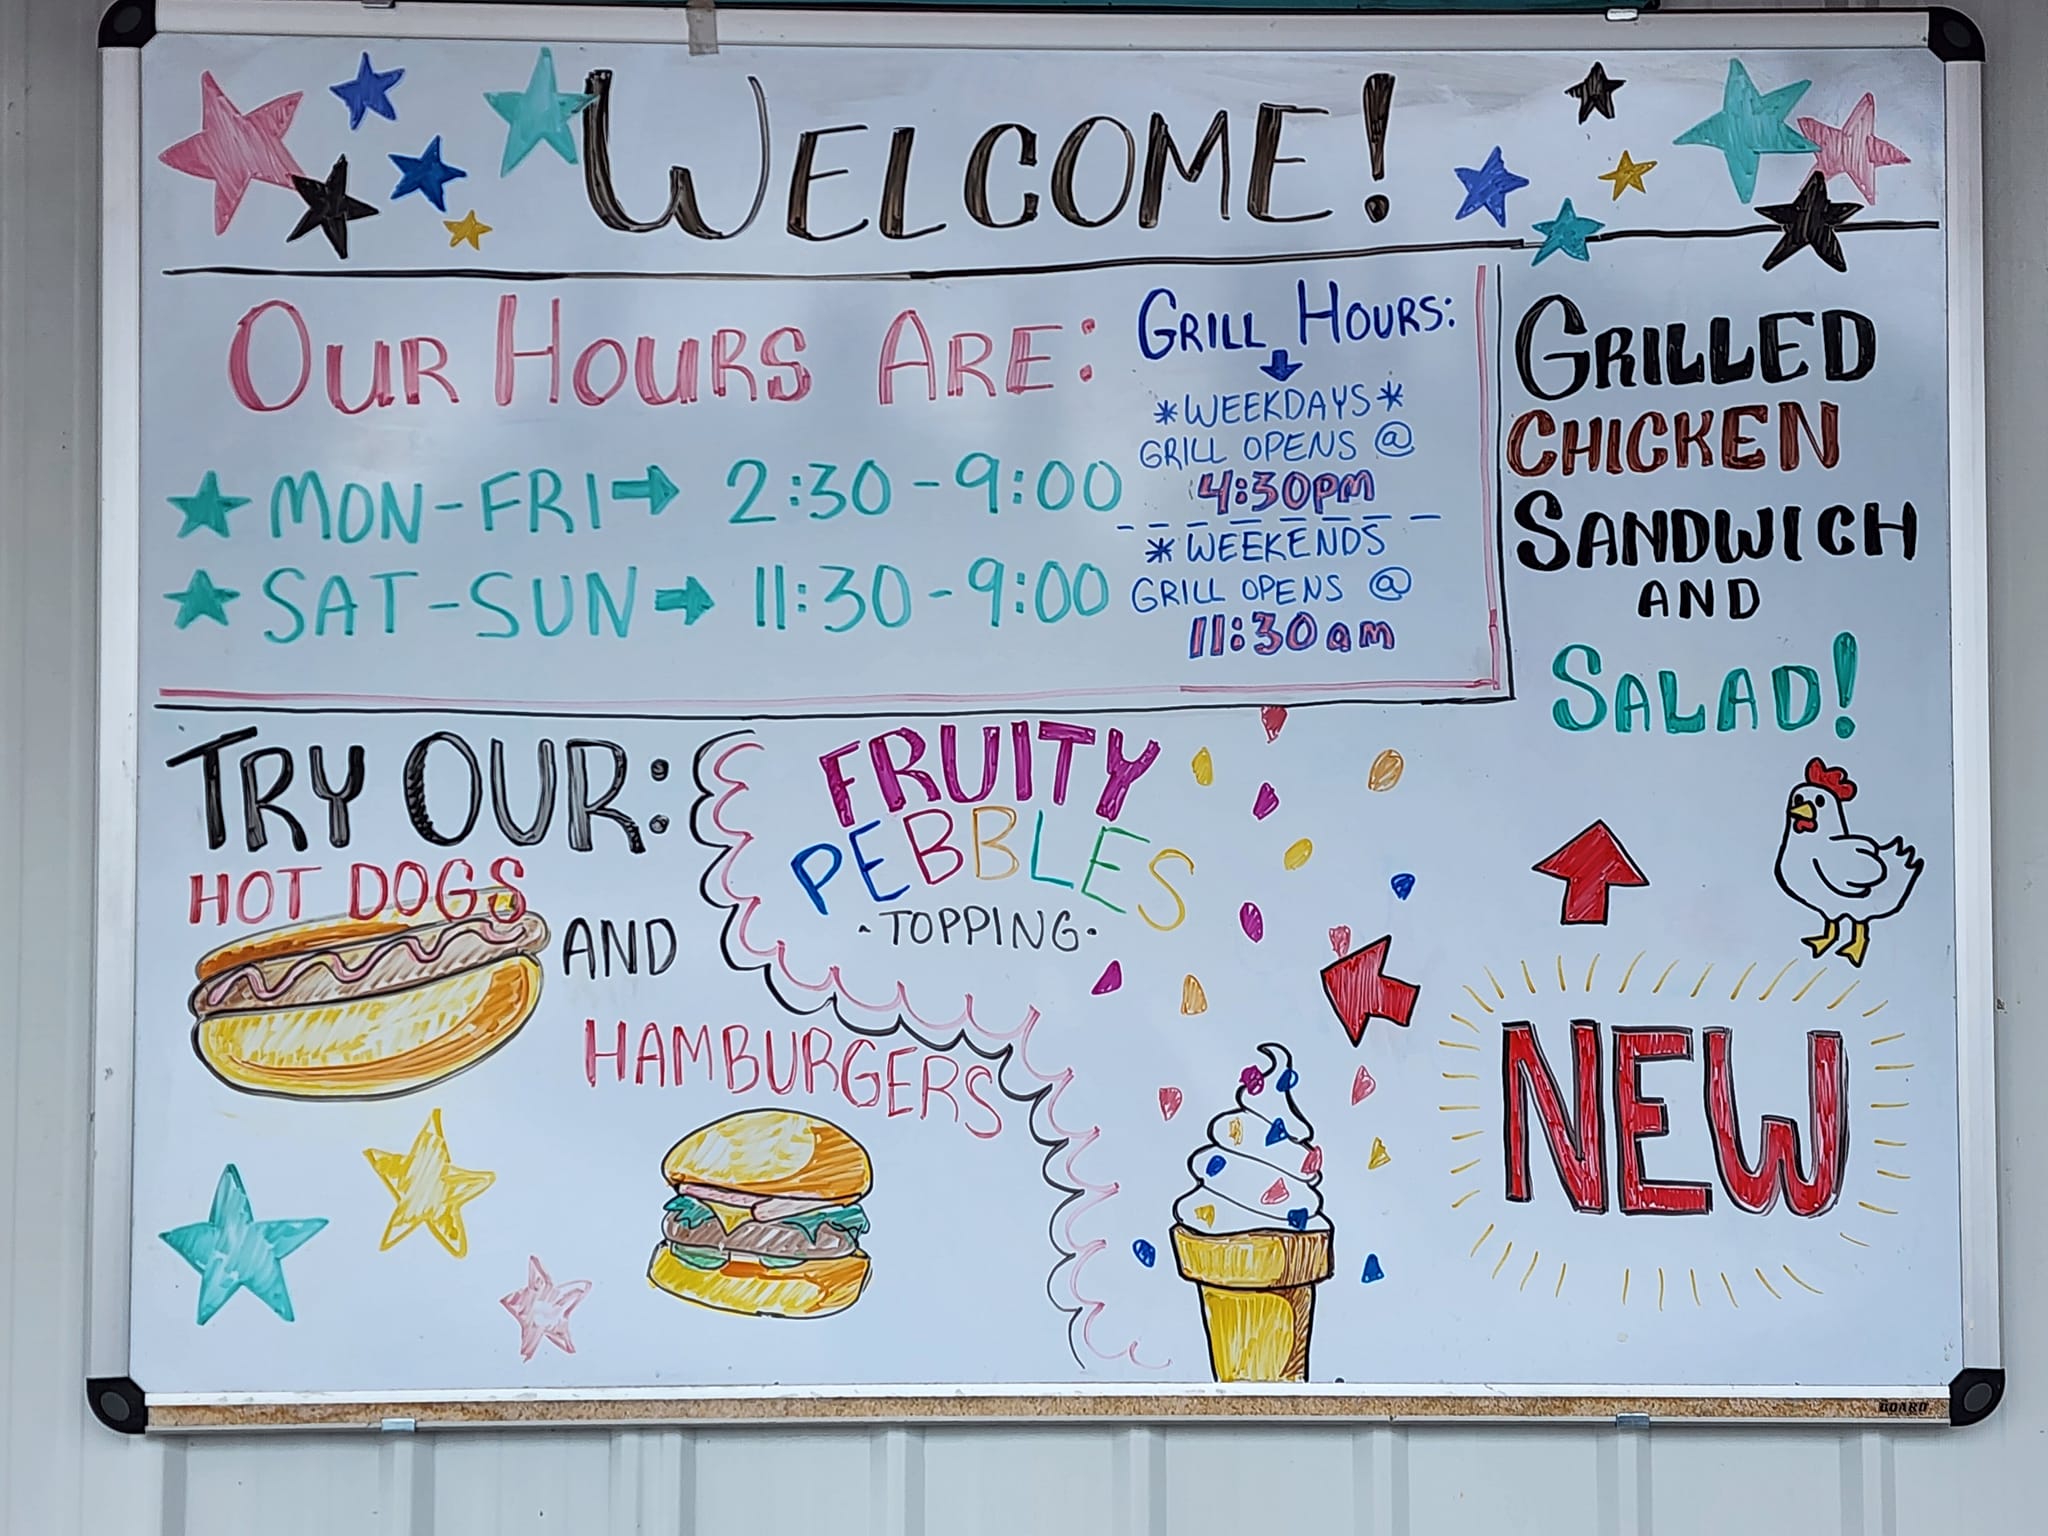 WELCOME!
OUR HOURS ARE:
MON-FRI → 2:30-9:00
SAT-SUN → 11:30-9:00
GRILL HOURS:
*WEEKDAYS*
GRILL OPENS @
4:30pm
*WEEKENDS
GRILL OPENS @
11:30am
GRILLED
CHICKEN
SANDWICH
AND
SALAD!
NEW
TRY OUR:
HOT DOGS
AND
HAMBURGERS
FRUITY
PEBBLES
·TOPPING·
BOARD